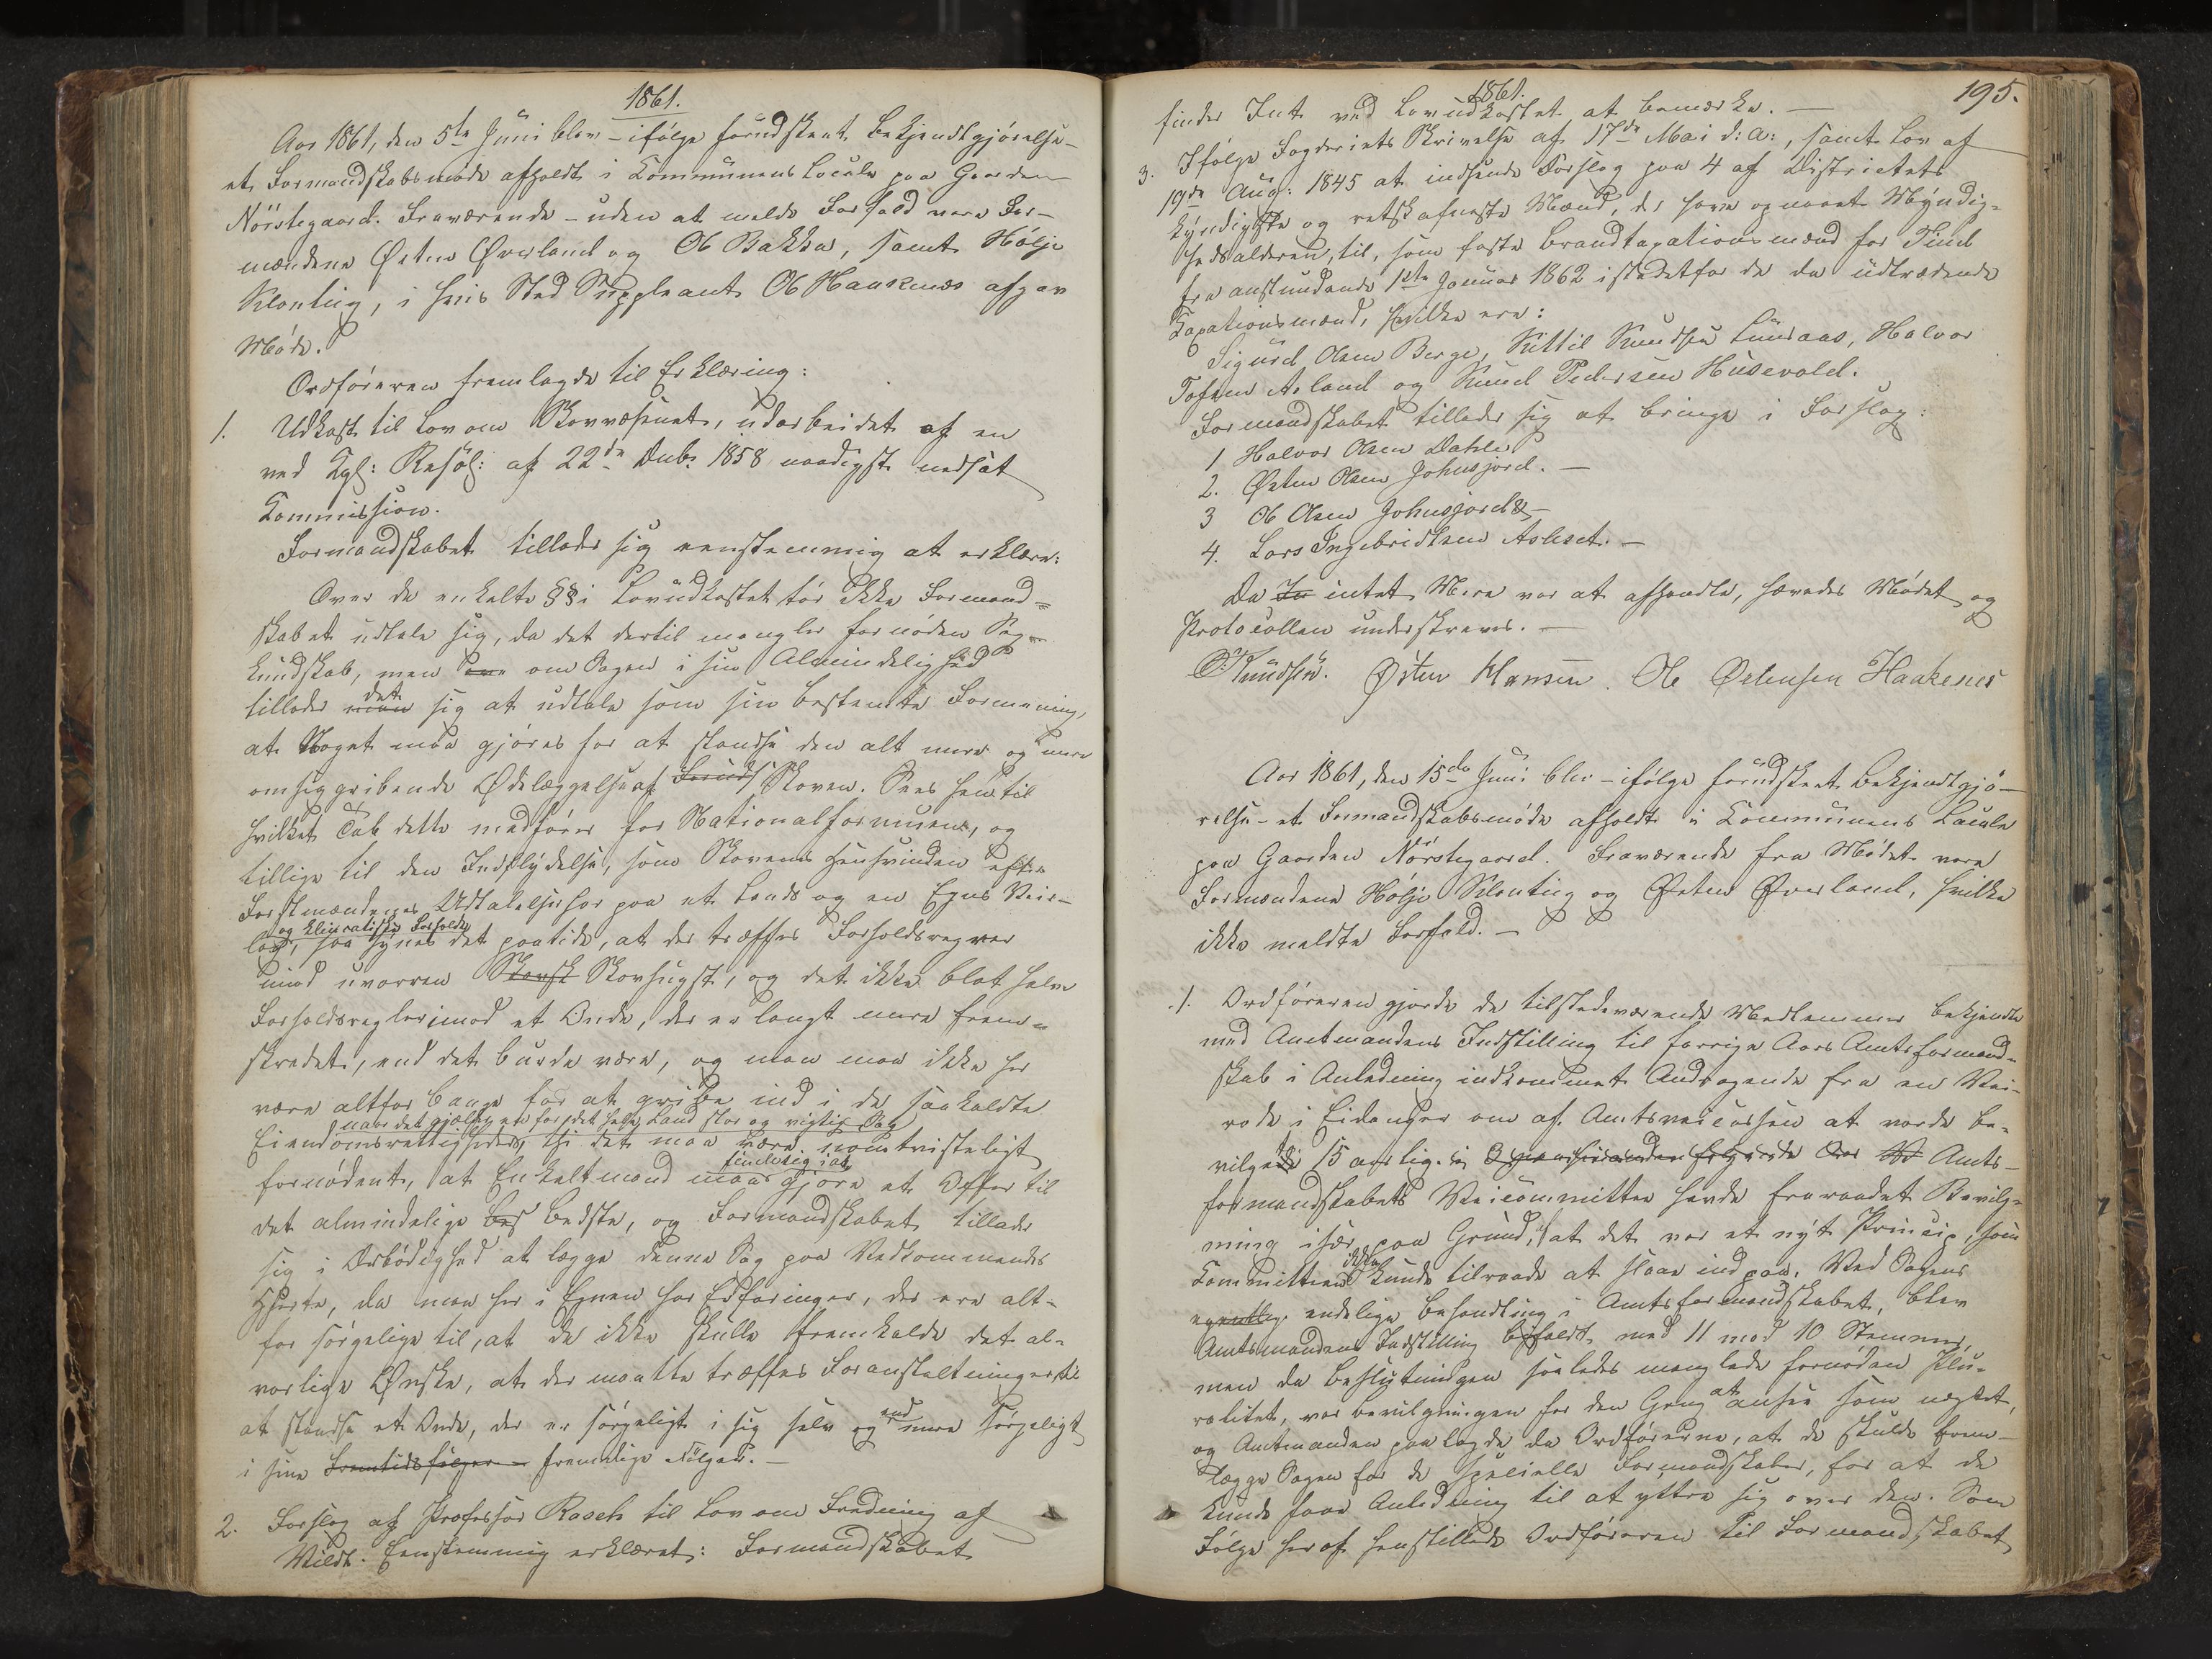 1861.
Aar 1861, den 5te Juni blev – ifølge forudskeet Bekjendtgjørelse –
et Formandskabsmøde afholdt i Kommunens Locale paa Gaarden
Nørstegaard. Fraværende – uden at melde Forfald vare For-
mændene Østen Øverland og Ole Bakken, samt Hølje
Klonteig, i hvis Sted Suppleant Ole Haakenæs afgav
Møde.
Ordføreren fremlagde til Erklæring:
1. Udkast til Lov om Skovvæsenet, udarbeidet af en
ved Kgl: Resol: af 22de Debr 1858 naadigst nedsat
Kommission.
Formandskabet tillader sig eenstemmig at erklære:
Over de enkelte §§ i Lovudkastet tør ikke Formand-
skabet udtale sig, da det dertil mangler fornøden Sag-
kundskab, men om Sagen i sin Almindelighed
tillader det man sig at udtale som sin bestemte Formening,
at Noget maa gjøres for at standse den alt mere og mere
omsiggribende Ødelæggelse af Skoven. Sees hen til
hvilket Tab dette medfører for Nationalformuen, og
tillige til den Indflydelse, som Skovens Hensvinden efter
Forstmændenes Udtalelse har paa et Lands og en Egns Veir-
lag, og klimatiske Forholde saa synes det paatide, at der træffes Forholdsregler
imod uvorren Skovsk Skovhugst, og det ikke blot halve
Forholdsregler imod et Onde, der er langt mere frem-
skredet, end det burde være, og man maa ikke her
være altfor bange for at gribe ind i de saakaldte
naar det gjælder en for det hele Land stor og vigtig Sag
Eiendomsrettigheder, thi det maa være uomtvisteligt
fornødent, at Enkeltmand maa finde sig i at gjøre et Offer til
det almindelige bes Bedste, og Formandskabet tillader
sig i Ærbødighed at lægge denne Sag paa Vedkommendes
Hjerte, da man her i Egnen har Erfaringer, der ere alt-
for sørgelige til, at de ikke skulle fremkalde det al-
vorlige Ønske, at der maatte træffes Foranstaltninger til
at standse et Onde, der er sørgeligt i sig selv og end mere sørgeligt
i sine Fremtidsfølger – fremtidige Følger. –
2. Forslag af Professor Rasch til Lov om Fredning af
Vildt. Eenstemmig erklæret: Formandskabet
1861.
195.
finder Intet ved Lovudkastet at bemærke. –
3. Ifølge Fogderiets Skrivelse af 17de Mai d: A:, samt Lov af
19de Aug: 1845 at indsende Forslag paa 4 af Districtets
kyndigste og retskafneste Mænd, der have opnaaet Myndig-
hedsalderen, til, som faste Brandtaxationsmænd for Tind
fra anstundende 1ste Januar 1862 istedetfor de da udtrædende
Taxationsmænd, hvilke ere:
Sigurd Olsen Berge, Kittil Knudsen Luraas, Halvor
Tofsen Aaland og Knud Pedersen Husevold.
Formandskabet tillader sig at bringe i Forslag:
1 Halvor Olsen Dahle
2. Østen Olsen Johnsjord. –
3 Ole Olsen Johnsjord –
4. Lars Ingebridtsen Asleset. –
Da In intet Mere var at afhandle, hævedes Mødet og
Protocollen underskreves. –
O. Knudsen. Østen Hansen. Ole Østensen Haakenes
Aar 1861, den 15de Juni blev – ifølge forudskeet Bekjendtgjø-
relse – et Formandskabsmøde afholdt i Kommunens Locale
paa Gaarden Nørstegaard. Fraværende fra Mødet vare
Formændene Hølje Klonteig og Østen Øverland, hvilke
ikke meldte Forfald. –
1. Ordføreren gjorde de tilstedeværende Medlemmer bekjendte
med Amtmandens Indstilling til forrige Aars Amtsformand-
skab i Anledning indkommet Andragende fra en Vei-
rode i Eidanger om af Amtsveicassen at vorde be-
vilget 15 aarlig. Amts-
formandskabets Veicommittee havde fraraadet Bevilg-
ning især paa Grund af at det var et nyt Princip, som
Committeen ikke kunde tilraade at slaae ind paa. Ved Sagens
egentlige endelige Behandling i Amtsformandskabet, blev
Amtsmandens Indstilling bifaldt med 11 mod 10 Stemmer,
men da Beslutningen saaledes manglede fornøden Plu-
ralitet, var Bevilgningen for den Gang at ansee som nægtet,
og Amtmanden paalagde da Ordførerne, at de skulde frem-
lægge Sagen for de specielle Formandskaber, for at de
kunde faae Anledning til at yttre sig over den. Som
Følge heraf henstillede Ordføreren til Formandskabet